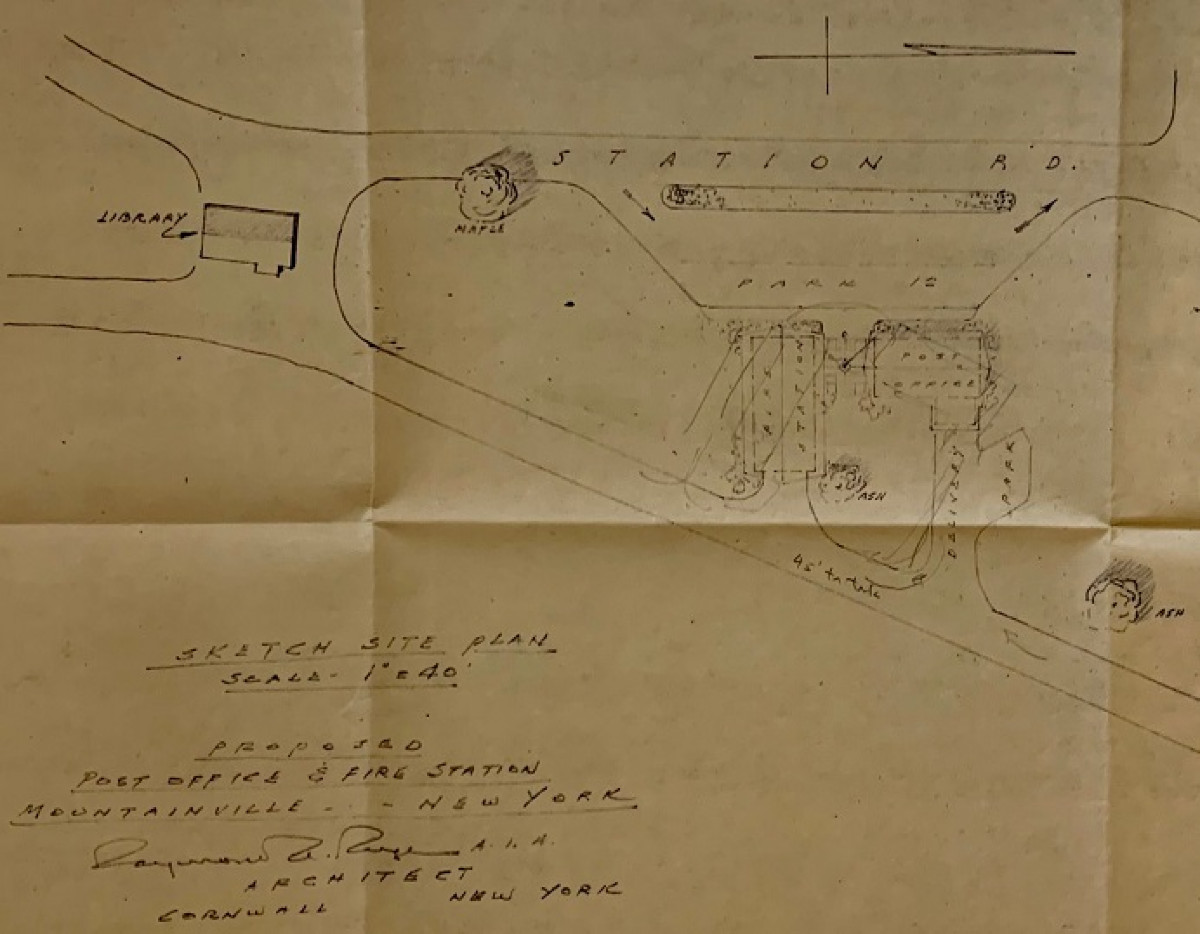 STATION RD.
LIBRARY
MAPLE
PARK 12
FIRE STATION
POST
OFFICE
ASH
DELIVERY
PARK
45'
ASH
SKETCH SITE PLAN
SCALE - 1" = 40'
PROPOSED
POST OFFICE & FIRE STATION
MOUNTAINVILLE - - NEW YORK
Raymond A.I.A.
ARCHITECT
CORNWALL NEW YORK